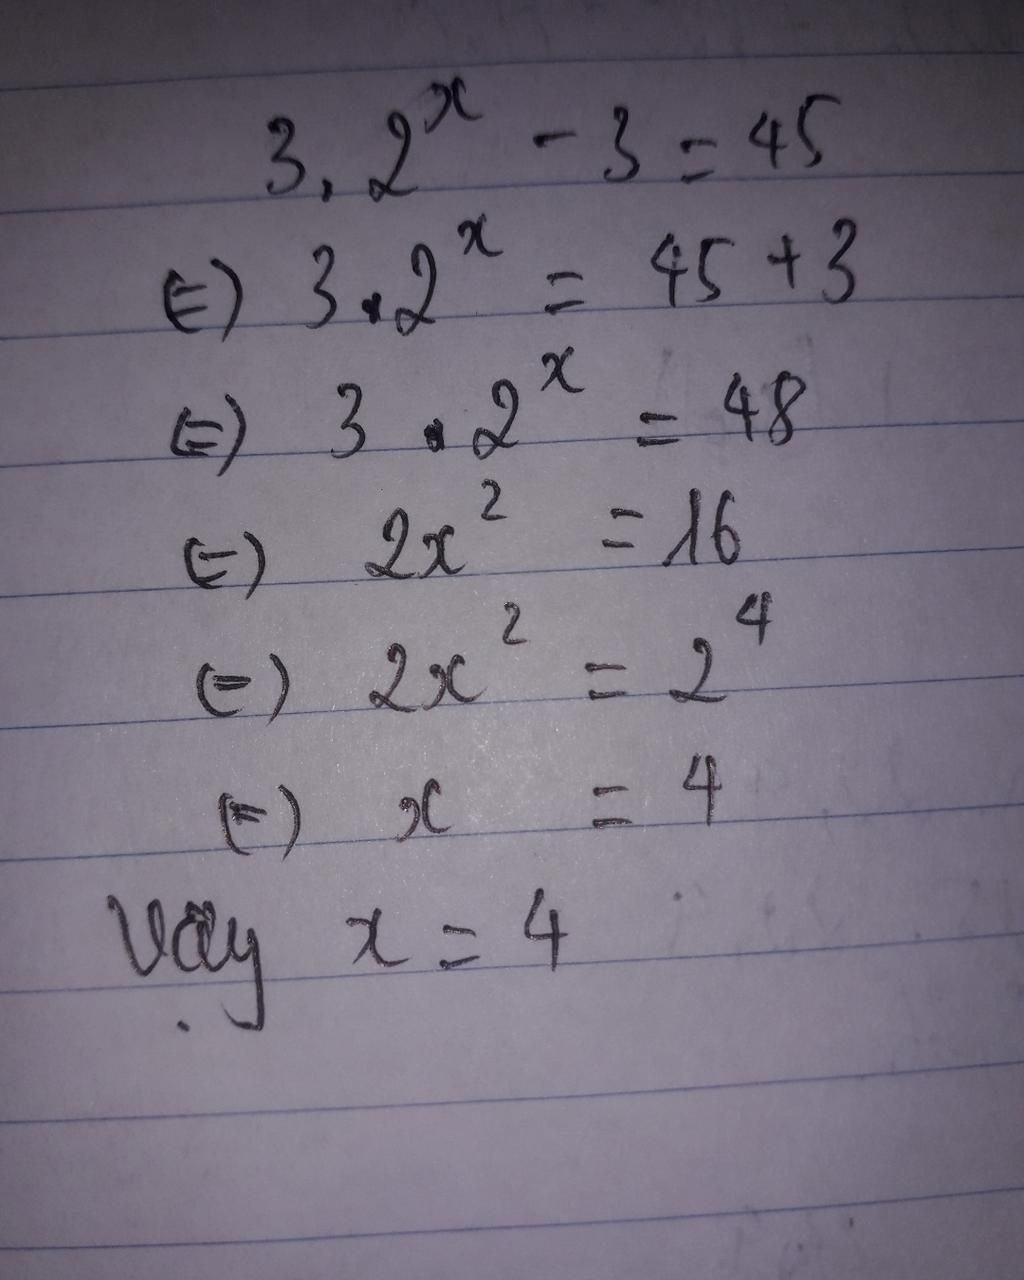 3.2^x - 3 = 45
(=) 3.2^x = 45 + 3
(=) 3.2^x = 48
(=) 2x^2 = 16
(=) 2x^2 = 2^4
(=) x = 4
Vậy x = 4